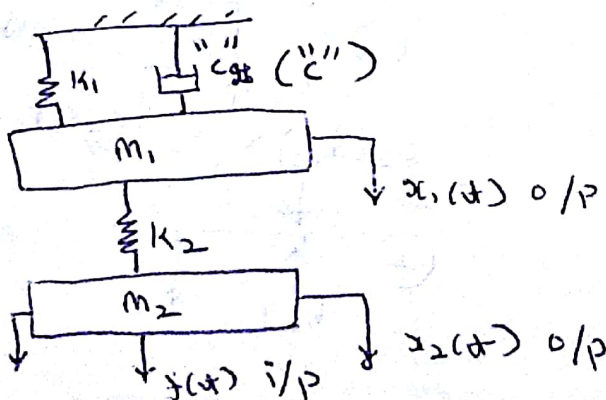 K₁ "C" ("C")
M₁
x₁(t) o/p
K₂
M₂
x₂(t) o/p
f(t) i/p